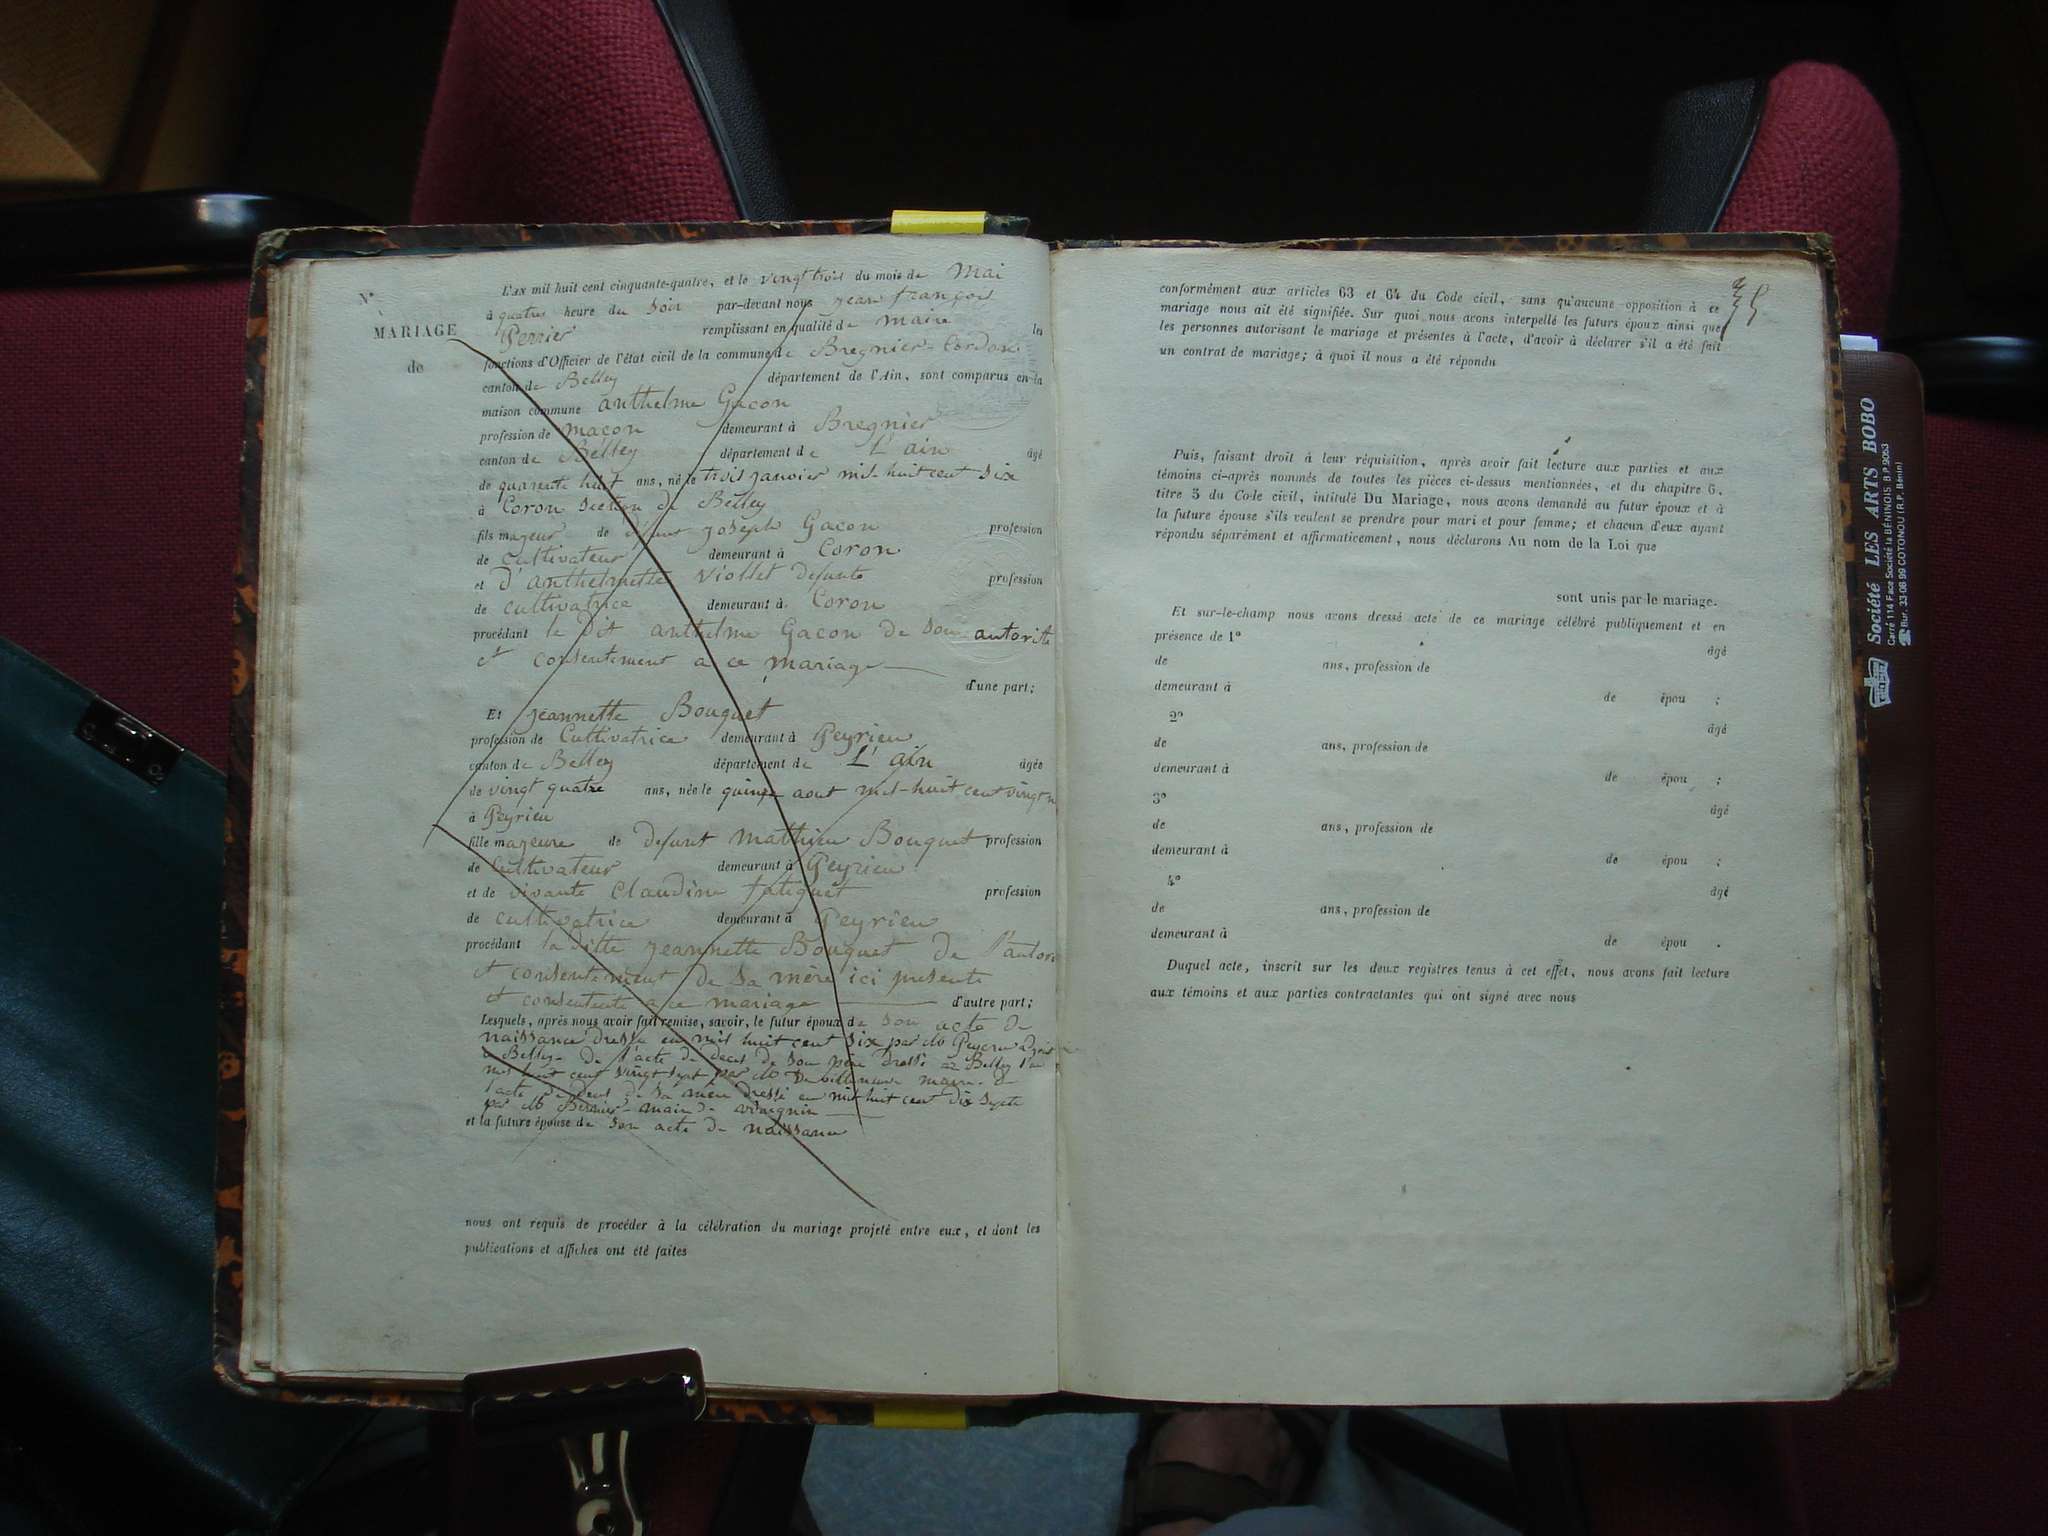 N°
MARIAGE
de
L'AN mil huit cent cinquante-quatre, et le vingt trois du mois de Mai
à quatres heure du Soir par-devant nous jean françois
Perrier remplissant en qualité de maire les
fonctions d'Officier de l'état civil de la commune de Bregnier-Cordon
canton de Belley département de l'Ain, sont comparus en la
maison commune anthelme Gacon
profession de maçon demeurant à Bregnier
canton de Belley département de L'ain âgé
de quarente huit ans, né le trois janvier mil-huit cent Six
à Coron Section de Belley
fils majeur de défunt joseph Gacon profession
de Cultivateur demeurant à Coron
et d'anthelmette Viollet defunte profession
de cultivatrice demeurant à Coron
procédant le dit anthelme Gacon de Son autorité
et consentement a ce mariage
d'une part;
Et jeannette Bouquet
profession de Cultivatrice demeurant à Peyrieu
canton de Belley département de L'ain âgée
de vingt quatre ans, née le quinze aout mil-huit cent vingt n
à Peyrieu
fille majeure de defunt mathieu Bouquet profession
de Cultivateur demeurant à Peyrieu
et de vivante Claudine fatiguet profession
de cultivatrice demeurant à Peyrieu
procédant la ditte jeannette Bouquet de l'autori
et consentement de Sa mère ici presente
et consentente a ce mariage d'autre part;
Lesquels, après nous avoir fait remise, savoir, le futur époux de Son acte de
naissance dressé en mil huit cent Six par Mr
a Belley de l'acte de deces de Son père dressé a Belley l'an
mil huit cent vingt Sept par Mr maire de
l'acte de deces de Sa mere dressé en mil huit cent dix Septe
par Mr maire de
et la future épouse de Son acte de naissance
nous ont requis de procéder à la célébration du mariage projeté entre eux, et dont les
publications et affiches ont été faites
35
conformément aux articles 63 et 64 du Code cicil, sans qu'aucune opposition à ce
mariage nous ait été signifiée. Sur quoi nous avons interpellé les futurs époux ainsi que
les personnes autorisant le mariage et présentes à l'acte, d'avoir à déclarer s'il a été fait
un contrat de mariage; à quoi il nous a été répondu
Puis, faisant droit à leur réquisition, après avoir fait lecture aux parties et aux
témoins ci-après nommés de toutes les pièces ci-dessus mentionnées, et du chapitre 6,
titre 5 du Code civil, intitulé Du Mariage, nous avons demandé au futur époux et à
la future épouse s'ils veulent se prendre pour mari et pour femme; et chacun d'eux ayant
répondu séparément et affirmaticement, nous déclarons Au nom de la Loi que
sont unis par le mariage.
Et sur-le-champ nous avons dressé acte de ce mariage célébré publiquement et en
présence de 1° âgé
de ans, profession de
demeurant à de épou ;
2° âgé
de ans, profession de
demeurant à de épou ;
3° âgé
de ans, profession de
demeurant à de épou ;
4° âgé
de ans, profession de
demeurant à de épou .
Duquel acte, inscrit sur les deux registres tenus à cet effet, nous avons fait lecture
aux témoins et aux parties contractantes qui ont signé avec nous
Société LES ARTS BOBO
Carré 114 Face Société la BÉNINOIS B.P. 9053
Bur. 33-06 99 COTONOU (R.P. Bénin)